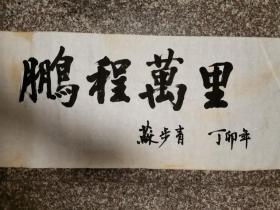 鵬程萬里
蘇步青 丁卯年